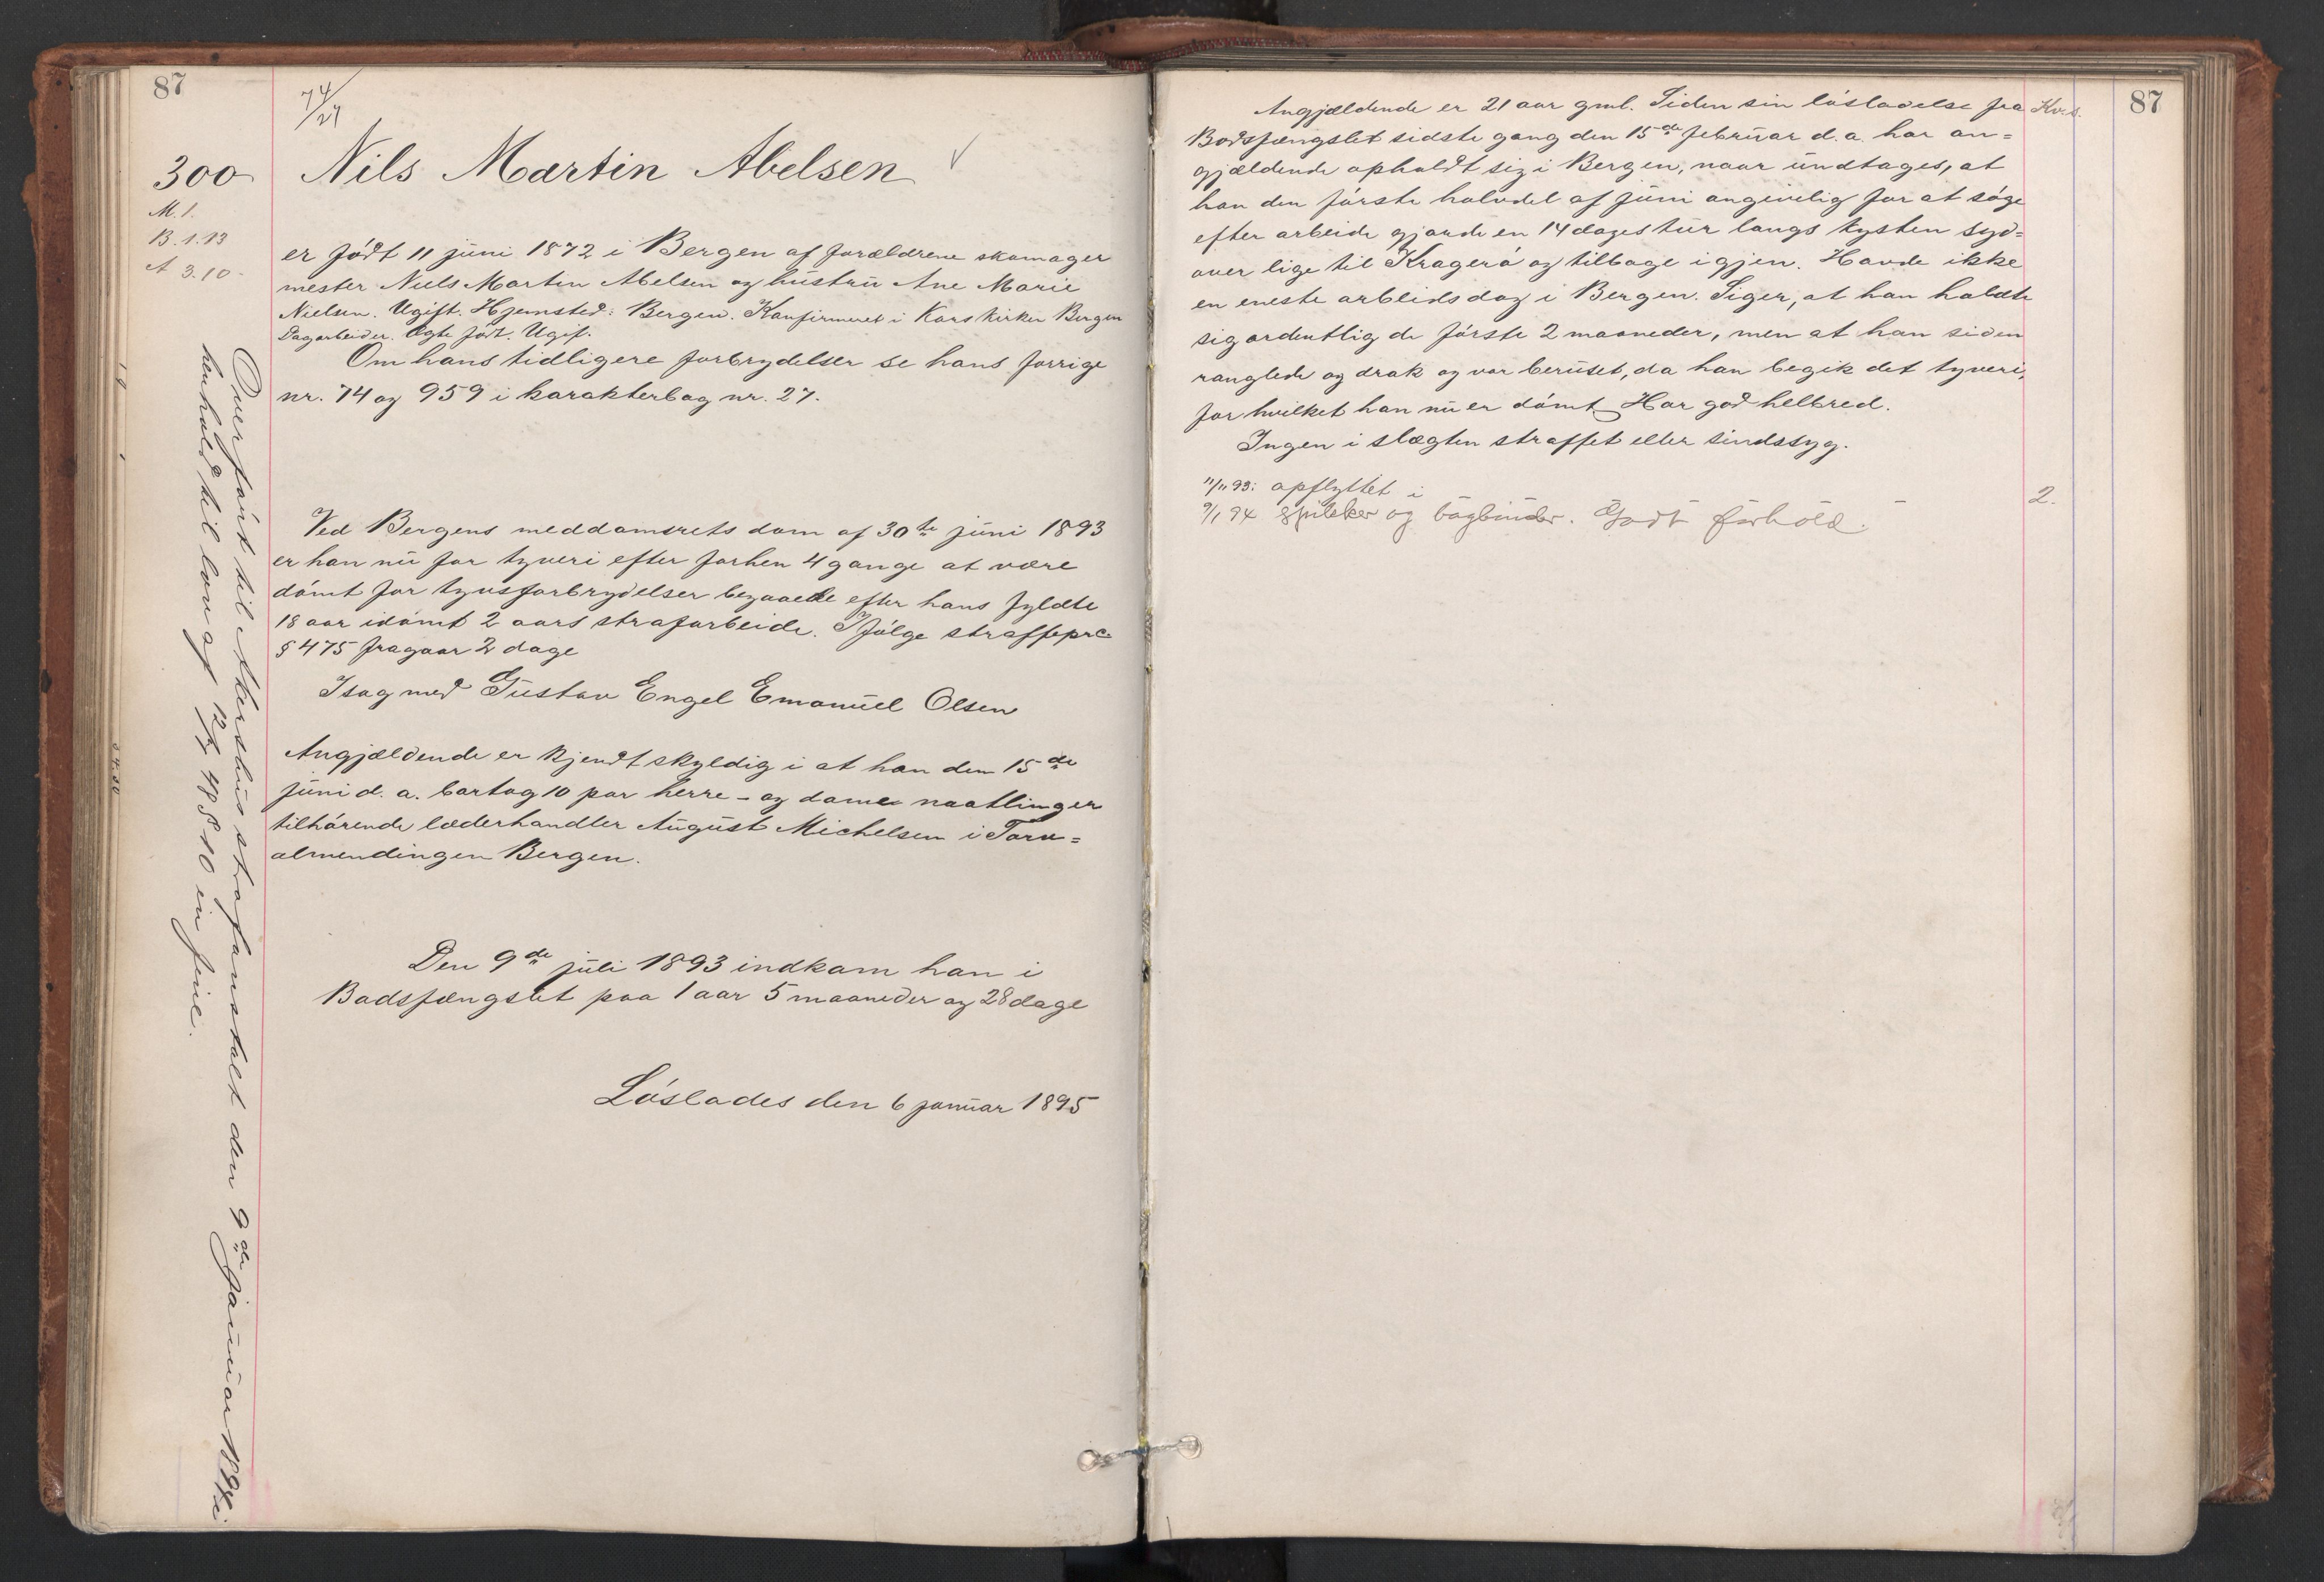 87
74/27
300 Nils Martin Abelsen
M. 1.
B. 1. 13
A 3. 10.
er født 11 juni 1872 i Bergen af forældrene skomager
mester Niels Martin Abelsen og hustru Ane Marie
Nielsen. Ugift. Hjemsted: Bergen. Konfirmeret i Korskirken Bergen
Dagarbeider. Ægte født. Ugift.
Om hans tidligere forbrydelser se hans forrige
nr. 74 og 959 i karakterbog nr. 27.
Ved Bergens meddomsrets dom af 30te juni 1893
er han nu for tyveri efter forhen 4 gange at være
dømt for tyvsforbrydelser begaaede efter hans fyldte
18 aar idømt 2 aars strafarbeide. Ifølge straffeprc
§ 475 fragaar 2 dage
I sag med Gustav Engel Emanuel Olsen
Angjældende er kjendt skyldig i at han den 15de
juni d. a. borttog 10 par herre- og dame naatlinger
tilhørende læderhandler August Michelsen i Torv=
almendingen Bergen.
Den 9de juli 1893 indkom han i
Bodsfængslet paa 1 aar 5 maaneder og 28 dage
Løslades den 6 januar 1895
Overført til Akershus strafanstalt den 9de januar 1894 i
henhold til lov af 12/7 1880 in fine.
87
Angjældende er 21 aar gml. Siden sin løsladelse fra
Bodsfængslet sidste gang den 15de februar d. a. har an=
gjældende opholdt sig i Bergen, naar undtages, at
han den første halvdel af juni angivelig for at søge
efter arbeide gjorde en 14 dages tur langs kysten syd=
over lige til Kragerø og tilbage igjen. Havde ikke
en eneste arbeidsdag i Bergen. Siger, at han holdte
sig ordentlig de første 2 maaneder, men at han siden
ranglede og drak og var beruset, da han begik det tyveri,
for hvilket han nu er dømt. Har god helbred.
Ingen i slægten straffet eller sindssyg.
11/11 93: opflyttet i 2.
9/1 94 og bogbinder. Godt forhold.